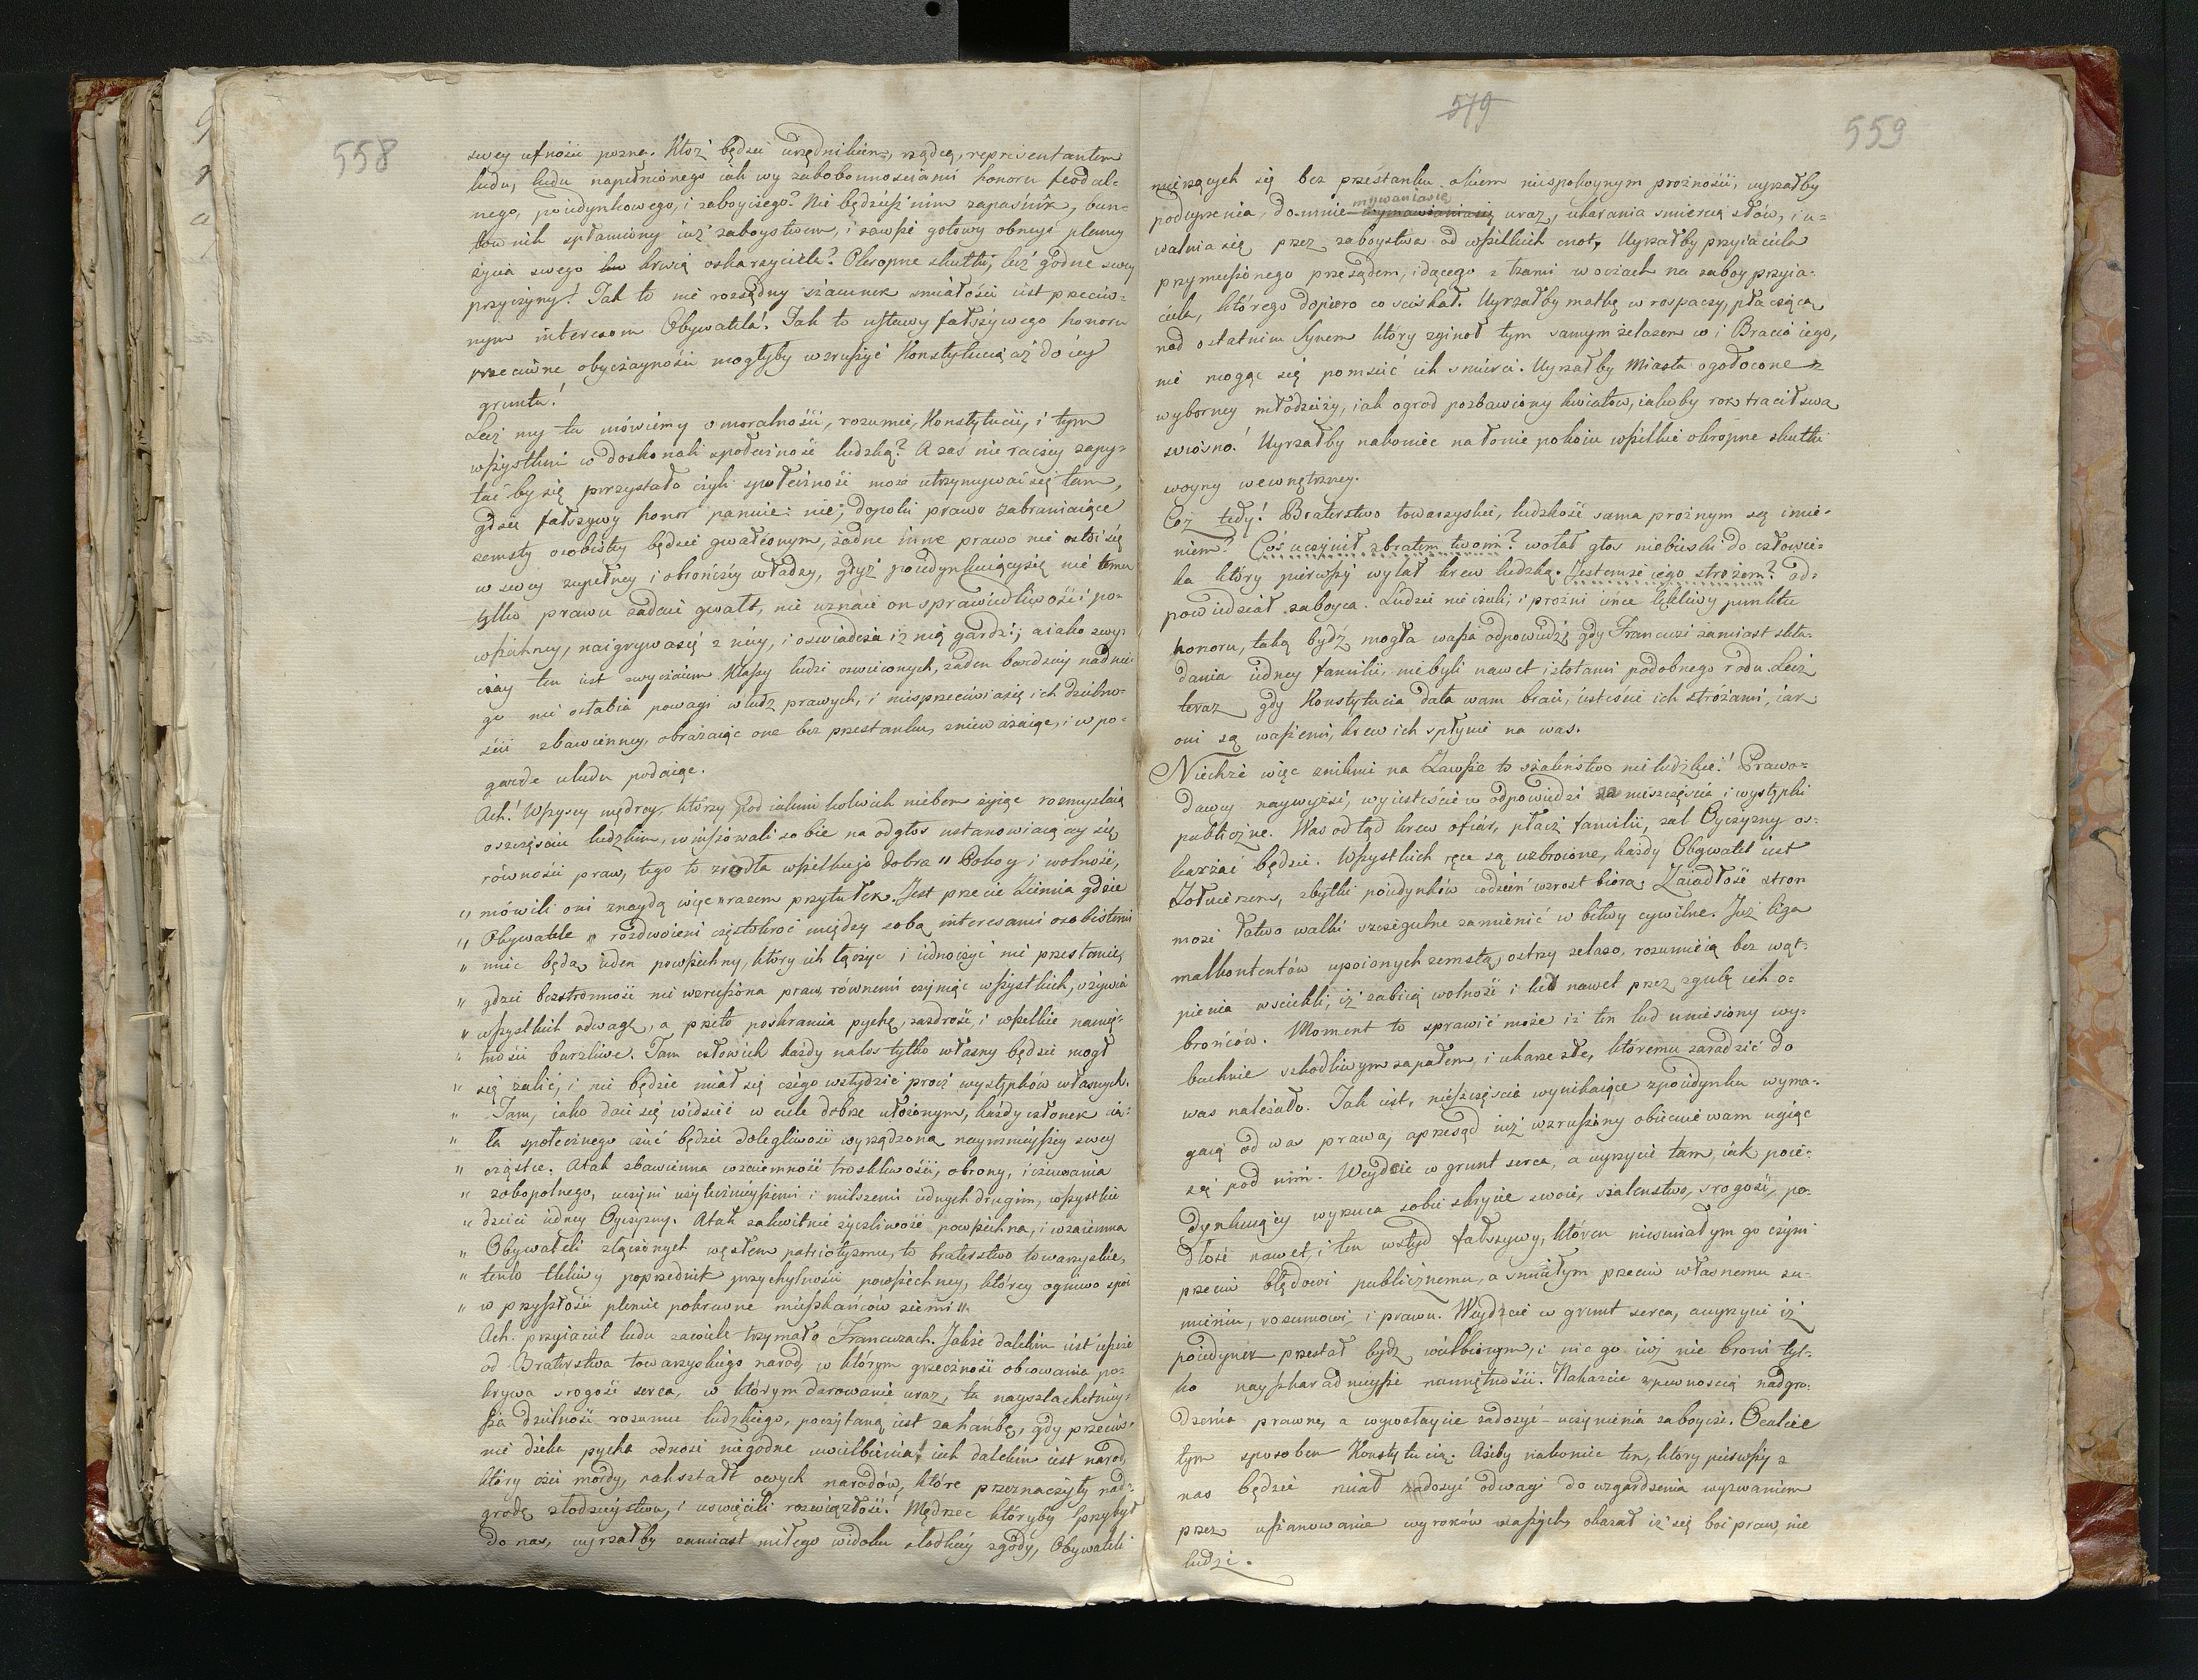 558
swey ufności pozna. Ktoż będzie urzędnikiem, rządcą, reprezentantem
ludu, ludu napełnionego iak wy zabobonnościami honoru feodal-
nego, poiedynkowego, i zaboyczego? Nie będzieſz nim zapaśnik, bun-
townik splamiony iuż zaboystwem, i zawſze gotowy obmyć plamy
życia swego krwią oskarzyciela? Okropne skutki, lecz godne swey
przyczyny! Tak to nie rozsądny szacunek śmiałości iest przeciw-
nym interesom Obywatela! Tak to uſtawy fałszywego honoru
przeciwne obyczayności mogłyby wzruſzyć Konstytucią aż do iey
gruntu!
Lecz my tu mówiemy o moralności, rozumie, Konstytucii, i tym
wſzystkim co doskonali społeczność ludzką? A zas nie raczey zapy-
tać by się przystało czyli społeczność może utrzymywać się tam,
gdzie fałszywy honor panuie: nie; dopoki prawo zabraniaiące
zemsty osobistey będzie gwałconym, żadne inne prawo nie ostoi się
w swey zupełney i obrończey władzy, gdyż poiedynkuiącysię nie temu
tylko prawu zadaie gwałt, nie uznaie on sprawiedliwości po-
wſzechney, naigrywasię z niey, i oswiadcza iż nią gardzi; a iako zwy-
czay ten iest zwyczaiem Klaſſy ludzi oswieconych, żaden bardziey nad nie-
go nie osłabia powagi władz prawych, i niesprzeciwiasię ich dzielno-
ści zbawienney, obrażaiąc one bez przestanku, znieważaiąc, i w po-
gardę u ludu podaiąc.
Ach! Wſzyscy mędrcy, którzy pod iakimkolwiek niebem żyiąc rozmyslaią
o szczęściu ludzkim, winſzowali sobie na odgłos ustanowiaiącey się
równości praw, tego to zrzodła wſzelkiego dobra " Pokoy i wolność,
" mówili oni znaydą więc razem przytułek. Jest przecie Ziemia gdzie
" Obywatele " rozdwoieni częstokroć między sobą interesami osobistemi
" mieć będą ieden powſzechny, który ich łączyć i iednoczyć nie przestanie,
" gdzie bezstronność nie wzruſzona praw, równemi czyniąc wſzystkich, ożywia
" wſzystkich odwagę, a przeto poskramia pychę, zazdrość, i wſzelkie namię-
" tności burzliwe. Tam człowiek każdy na los tylko własny będzie mogł
" się żalić, i nie będzie miał się czego wstydzić procz występków własnych.
" Tam, iako daie się widzieć w ciele dobrze ułożonym, każdy członek cia-
" ła społecznego czuć będzie dolegliwość wyrządzoną naymnieyſzey swey
" cząstce. A tak zbawienna wzaiemność troskliwości, obrony, i czuwania
" zobopolnego, uczyni użytecznieyſzemi i milszemi iednych drugim, wſzystkie
" dzieci iedney Oyczyzny. A tak zakwitnie życzliwość powſzechna, i wzaiemna
" Obywateli złączonych węzłem patriotyzmu, to braterstwo towarzyskie,
" ten to tkliwy poprzednik przychylności powſzechney, którey ogniwo spoi
" w przyſzłości plemie pokrewne mieſzkańców ziemi ".
Ach! przyiaciel ludu zawiele trzymał o Francuzach. Jakże dalekim iest ieſzcze
od Braterstwa towarzyskiego narod, w którym grzeczność obcowania po-
krywa srogość serca, w którym darowanie uraz, ta nayszlachetniey-
ſza dzielność rozumu ludzkiego, poczytaną iest za hańbę, gdy przeciw-
nie dzika pycha odnosi niegodne uwielbienia! iak dalekim iest narod,
który czci mordy, nakształt owych narodów, które przeznaczyły nad-
grodę złodzieystwu, i uswięcili rozwiązłość! Mędrzec któryby przybył
do nas, uyrzałby zamiast miłego widoku słodkiey zgody, Obywateli
579
559
mierzących się bez przestanku okiem niespokoynym prożności, uyrzałby
podeyrzenia, domniemywaniasię uraz, ukarania śmiercią słów, i u-
walniasię przez zaboystwa od wſzelkich cnot. Uyrzałby przyiaciela
przymuſzonego przesądem, idącego z łzami w oczach na zaboy przyia-
ciela, którego dopiero co sciskał. Uyrzałby matkę w rospaczy, płaczącą
nad ostatnim Synem który zginoł tym samym żelazem co i Bracia iego,
nie mogąc się pomścić ich śmierci. Uyrzałby Miasta ogołocone z
wyborney młodzieży, iak ogrod pozbawiony kwiatów, iakoby rok tracił swą
wiosnę! Uyrzałby nakoniec na łonie pokoiu wſzelkie okropne skutki
woyny wewnętrzney.
Coż tedy! Braterstwo towarzyskie, ludzkość sama prożnym są imie-
niem? Coś uczynił z bratem twoim? wołał głos niebieski do człowie-
ka który pierwſzy wylał krew ludzką. Jestemże iego strożem? od-
powiedział zaboyca. Ludzie nieczuli, i prożni łękliwy punktu
honoru, taką bydź mogła waſza odpowiedź, gdy Francuzi zamiast skła-
dania iedney familii, niebyli nawet istotami podobnego rodu. Lecz
teraz gdy Konstytucia dała wam braci, iesteście ich strożami, iak
oni są waſzemi, krew ich spłynie na was.
Niechże więc zniknie na Zawſze to szaleństwo nieludzkie! Prawo-
dawcy naywyżsi, wy iesteście w odpowiedzi za nieszczęścia i występki
publiczne. Was od tąd krew ofiar, płacz familii, żal Oyczyzny os-
karżać będzie. Wſzystkich ręce są uzbroione, każdy Obywatel iest
Żołnierzem, zbytki poiedynków codzień wzrost biorą. Zaiadłość stron
może łatwo walki szczegulne zamienić w bitwy cywilne. Już liga
malkontentów upoionych zemstą, ostrzy żelazo, rozumieią bez wąt-
pienia wściekli, iż zabiią wolność i lud nawet przez zgubę ich o-
brońców. Moment to sprawić może iż ten lud uniesiony wy-
buchnie szkodliwym zapałem, i ukarze złe, któremu zaradzić do
was należało. Tak iest, nieſzczęścia wynikaiące z poiedynku wyma-
gaią od was prawa, a przesąd iuż wzruſzony obiecuie wam ugiąc
się pod nim. Weydzcie w grunt serca, a uyrzycie tam, iak poie-
dynkuiący wyrzuca sobie skrycie swoie, szalenstwo, srogość, po-
dłość nawet, i ten wstyd fałszywy, któren nieśmiałym go czyni
przeciw błędowi publicznemu, a smiałym przeciw własnemu su-
mieniu, rozumowi, i prawu. Weydzcie w grunt serca, a uyrzycie iż
poiedynek przestał bydź wielbionym, i nic go iuż nie broni tyl-
ko nayſzkaradnieyſze namiętności. Nakażcie z pewnością nadgro-
dzenia prawne, a wywołaycie zadosyć-uczynienia zaboycze. Ocalcie
tym sposobem Konstytucią. Ażeby nakoniec ten, który pierwſzy z
nas będzie miał zadosyć odwagi do wzgardzenia wyzwaniem
przez uſzanowanie wyroków waſzych, okazał iż się boi praw, nie
ludzi.